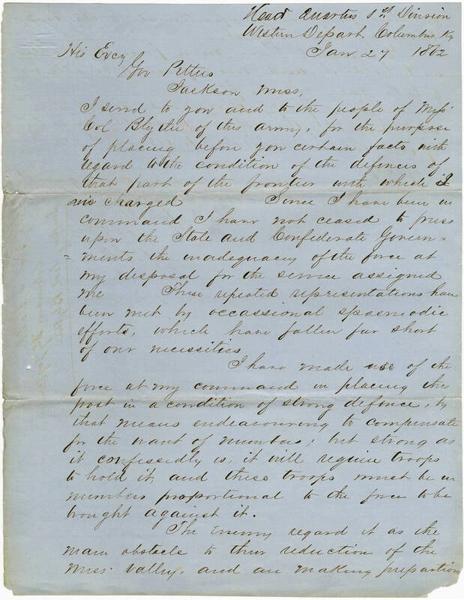 Head Quarters 1st Division
Western Depart. Columbus, Ky
Jan. 27 1862
His Excy
Gov Pettus
Jackson, Miss,
I send to you and to the people of Miss
Col. Blythe of this army, for the purpose
of placing before you certain facts with
regard to the condition of the defences of
that part of the frontier with which I
am charged Since I have been in
command I have not ceased to press
upon the State and Confederate Govern-
ments the inadequacy of the force at
my disposal for the service assigned
me These repeated representations have
been met by occassional spasmodic
efforts, which have fallen far short
of our necessities
I have made use of the
force at my command in placing this
post in a condition of strong defence, by
that means endeavouring to compensate
for the want of numbers; but strong as
it confessedly is, it will require troops
to hold it and these troops must be in
numbers proportional to the force to be
brought against it.
The Enemy regard it as the
main obstacle to their reduction of the
Miss. Valley, and are making prepartion